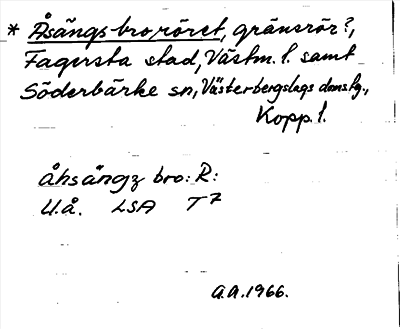 * Åsängsbroröret, gränsrör?,
Fagersta stad, Västm. l. samt
Söderbärke sn, Västerbergslags domsg.,
Kopp. l.
åhsängz bro: R:
U.å. LSA T7
A.A. 1966.